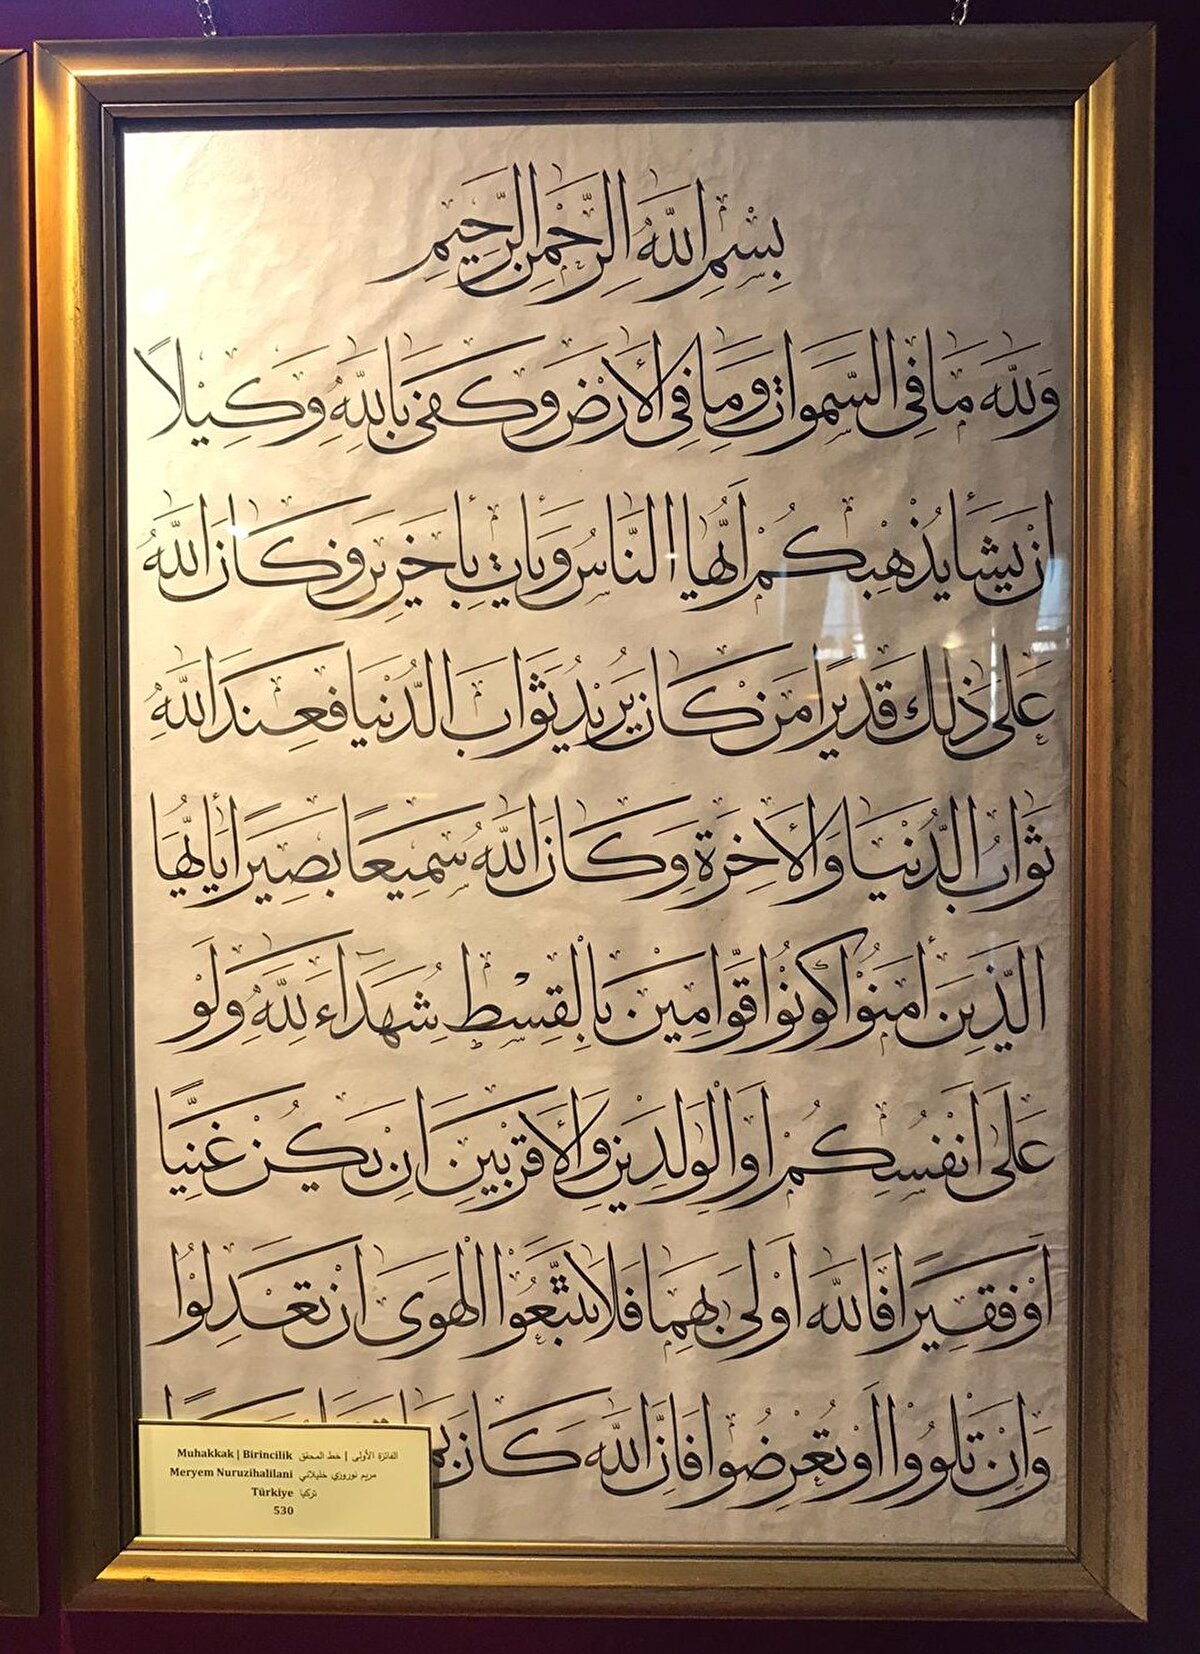 بِسْمِ اللَّهِ الرَّحْمٰنِ الرَّحِيمِ
وَلِلَّهِ مَا فِي السَّمٰوَاتِ وَمَا فِي الْأَرْضِ وَكَفَىٰ بِاللَّهِ وَكِيلًا
اِنْ يَشَأْ يُذْهِبْكُمْ اَيُّهَا النَّاسُ وَيَأْتِ بِاٰخَرِينَ وَكَانَ اللَّهُ
عَلَىٰ ذٰلِكَ قَدِيرًا مَنْ كَانَ يُرِيدُ ثَوَابَ الدُّنْيَا فَعِنْدَ اللَّهِ
ثَوَابُ الدُّنْيَا وَالْاٰخِرَةِ وَكَانَ اللَّهُ سَمِيعًا بَصِيرًا يَا أَيُّهَا
الَّذِينَ اٰمَنُوا كُونُوا قَوَّامِينَ بِالْقِسْطِ شُهَدَاءَ لِلَّهِ وَلَوْ
عَلَىٰ اَنْفُسِكُمْ اَوِ الْوٰلِدَيْنِ وَالْاَقْرَبِينَ اِنْ يَكُنْ غَنِيًّا
اَوْ فَقِيرًا فَاللَّهُ اَوْلَىٰ بِهِمَا فَلَا تَتَّبِعُوا الْهَوَىٰ اَنْ تَعْدِلُوا
وَاِنْ تَلْوُوا اَوْ تُعْرِضُوا فَاِنَّ اللَّهَ كَانَ
Muhakkak | Birincilik الفائزة الأولى | خط المحقق
Meryem Nuruzihalilani مريم نوروزي خليلاني
Türkiye تركيا
530